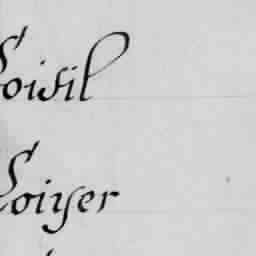 Loisil
Loiyer